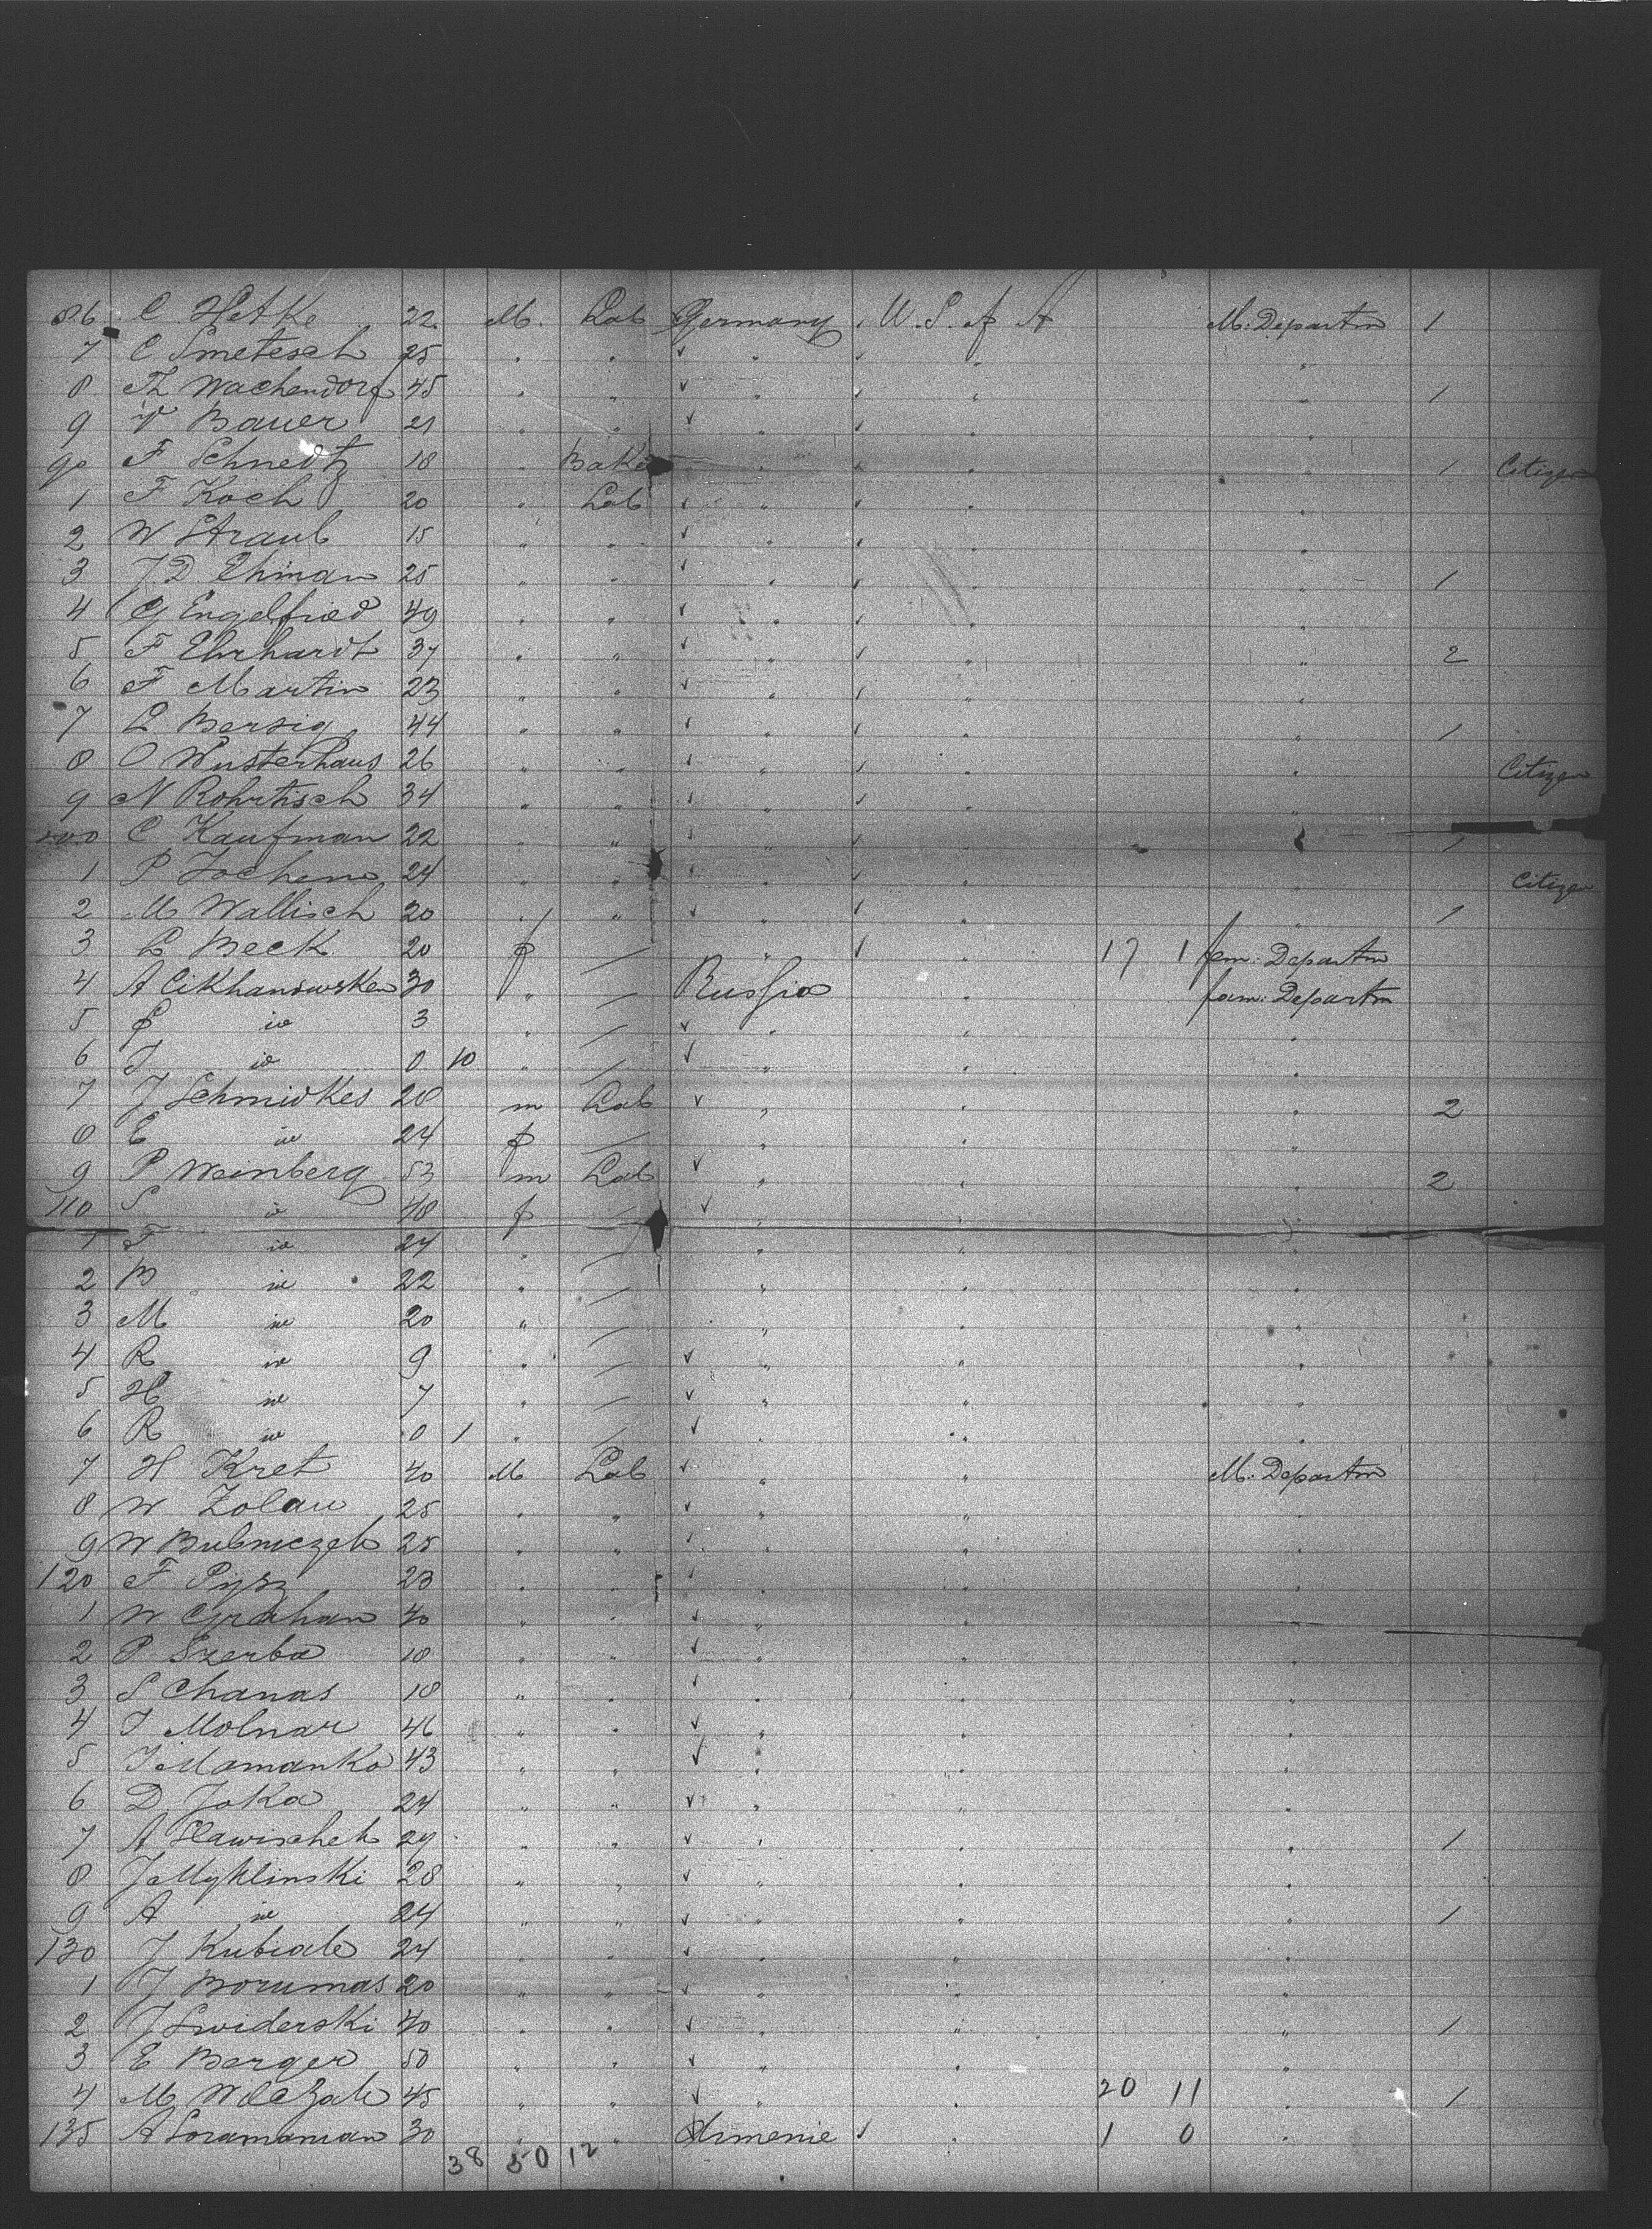 86 C Hetke 22 M. Lab Germany U. S. of A M. Departm 1
7 C Smetesch 25 " " ✓ " ✓ " "
8 Th Wachendorf 45 " " ✓ " ✓ " " 1
9 V Bauer 21 " " ✓ " ✓ " "
90 F Schnedtz 18 " Bake " ✓ " " 1 Citizen
1 F Koch 20 " Lab ✓ " ✓ " "
2 W Straub 15 " " ✓ " ✓ " "
3 J D Ehman 25 " " ✓ " ✓ " " 1
4 G Engelfried 49 " " ✓ " ✓ " "
5 F Ehrhardt 37 " " ✓ " ✓ " " 2
6 F Martin 23 " " ✓ " ✓ " "
7 L Bersig 44 " " ✓ " ✓ " " 1
8 O Wusterhaus 26 " " ✓ " ✓ " " Citizen
9 N Rohrtisch 34 " " ✓ " ✓ " "
100 C Kaufman 22 " " ✓ " ✓ " " 1
1 P Jochem 24 " " ✓ " ✓ " " Citizen
2 M Wallisch 20 " " ✓ " ✓ " " 1
3 L Beck 20 f / " ✓ " 17 1 fem: Departm
4 A Cikhanowsken 30 " / Russia " fam: Departm
5 io 3 " / ✓ " "
6 J io 0 10 " / ✓ " " "
7 J Schmidkes 28 m Lab ✓ " " " 2
8 E io 24 f / " " "
9 P Weinberg 53 m Lab ✓ " " " 2
110 S io 48 f / ✓ " " "
1 F io 24 " / " " "
2 B io 22 " / " " "
3 M io 20 " / " " "
4 R io 9 " / ✓ " " "
5 H io 7 " / ✓ " " "
6 R io 0 1 " / ✓ " " "
7 H Kret 40 M Lab ✓ " " M. Departm
8 W Zolau 25 " " ✓ " " "
9 W Bubniczek 25 " " ✓ " " "
120 F Pysz 23 " " ✓ " " "
1 W Grahan 40 " " ✓ " " "
2 P Szerba 18 " " ✓ " " "
3 S Chanas 18 " " ✓ " " "
4 J Molnar 46 " " ✓ " " "
5 J Mamanko 43 " " ✓ " " "
6 D Joka 24 " " ✓ " " "
7 A Slawischek 29 " " ✓ " " " 1
8 J Myklinski 28 " " ✓ " " "
9 A io 24 " " ✓ " " " 1
130 J Kubiak 24 " " ✓ " " "
1 J Borumas 20 " " ✓ " " "
2 J Swiderski 40 " " ✓ " " " 1
3 E Berger 50 " " ✓ " " "
4 M Wilczak 45 " " ✓ " " 20 11 " 1
135 A Soramanian 30 " " Armenie ✓ " 1 0 "
38 50 12